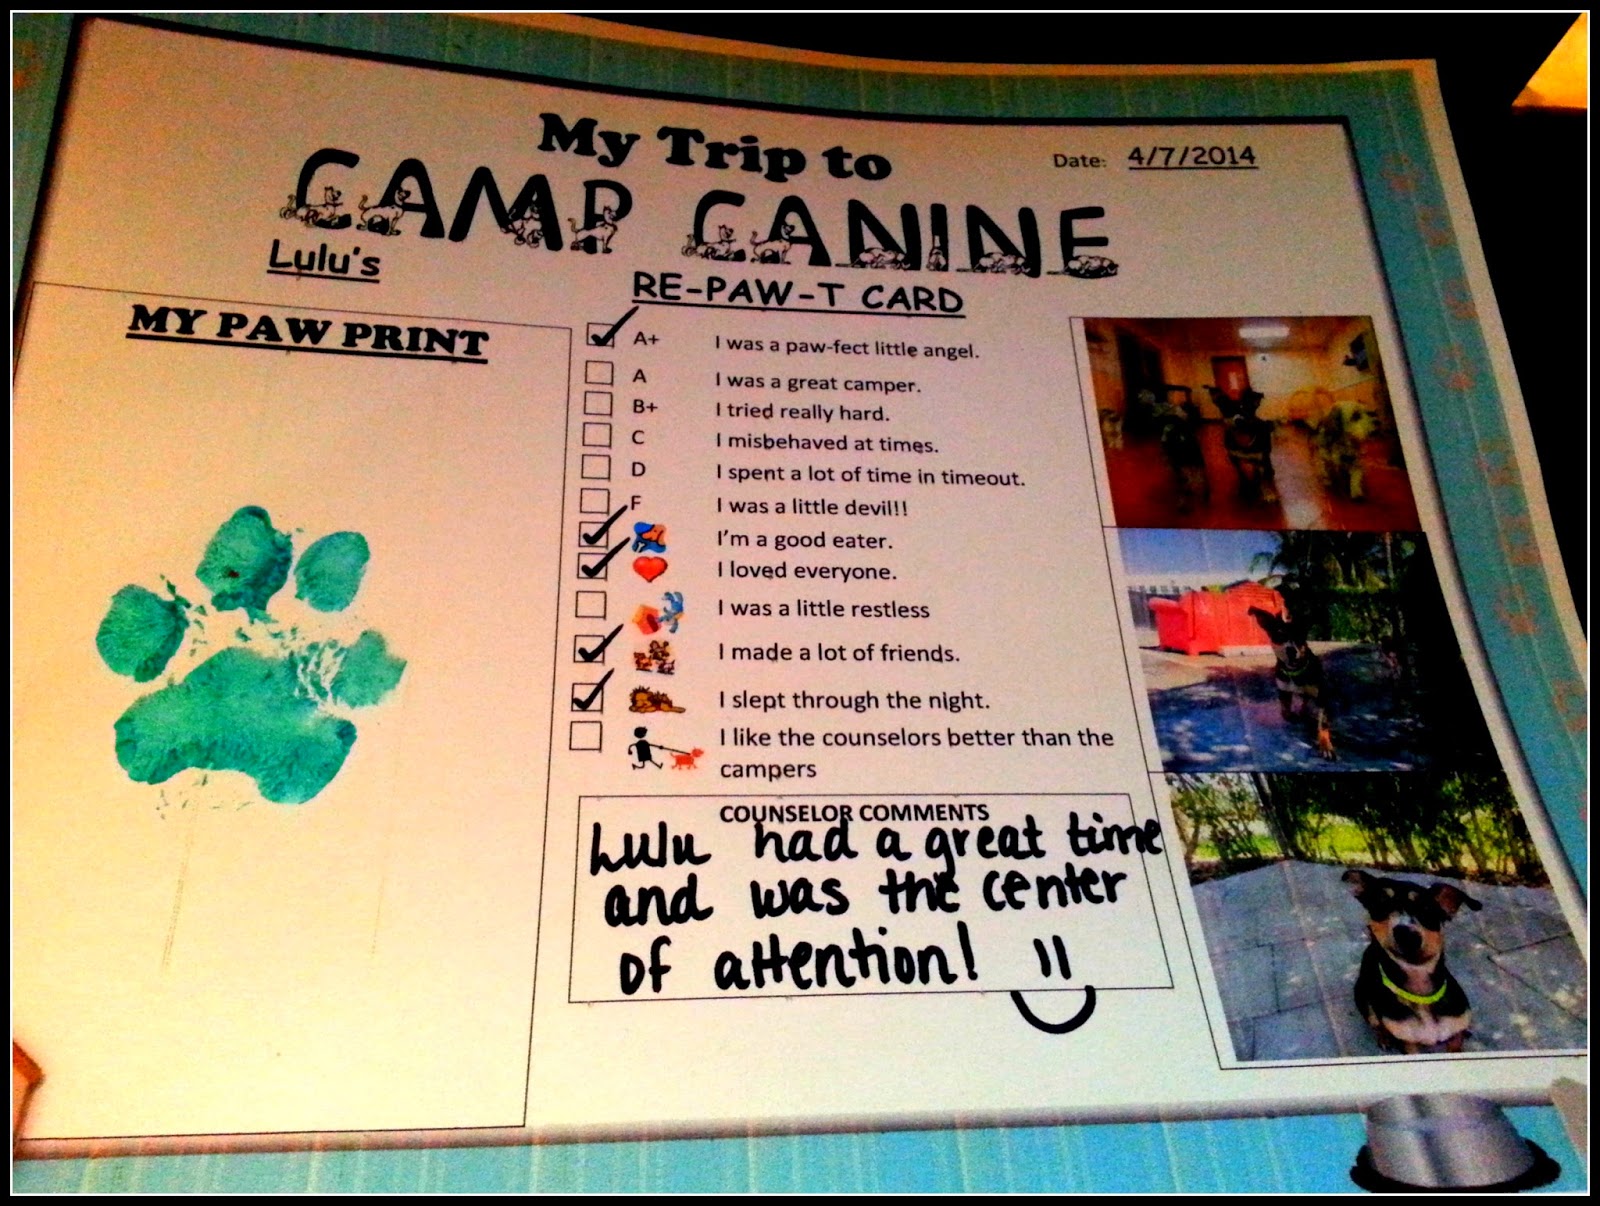 My Trip to
CAMP CANINE
Date: 4/7/2014
Lulu's
RE-PAW-T CARD
MY PAW PRINT
A+ I was a paw-fect little angel.
A I was a great camper.
B+ I tried really hard.
C I misbehaved at times.
D I spent a lot of time in timeout.
F I was a little devil!!
I'm a good eater.
I loved everyone.
I was a little restless
I made a lot of friends.
I slept through the night.
I like the counselors better than the
campers
COUNSELOR COMMENTS
Lulu had a great time
and was the center
of attention!